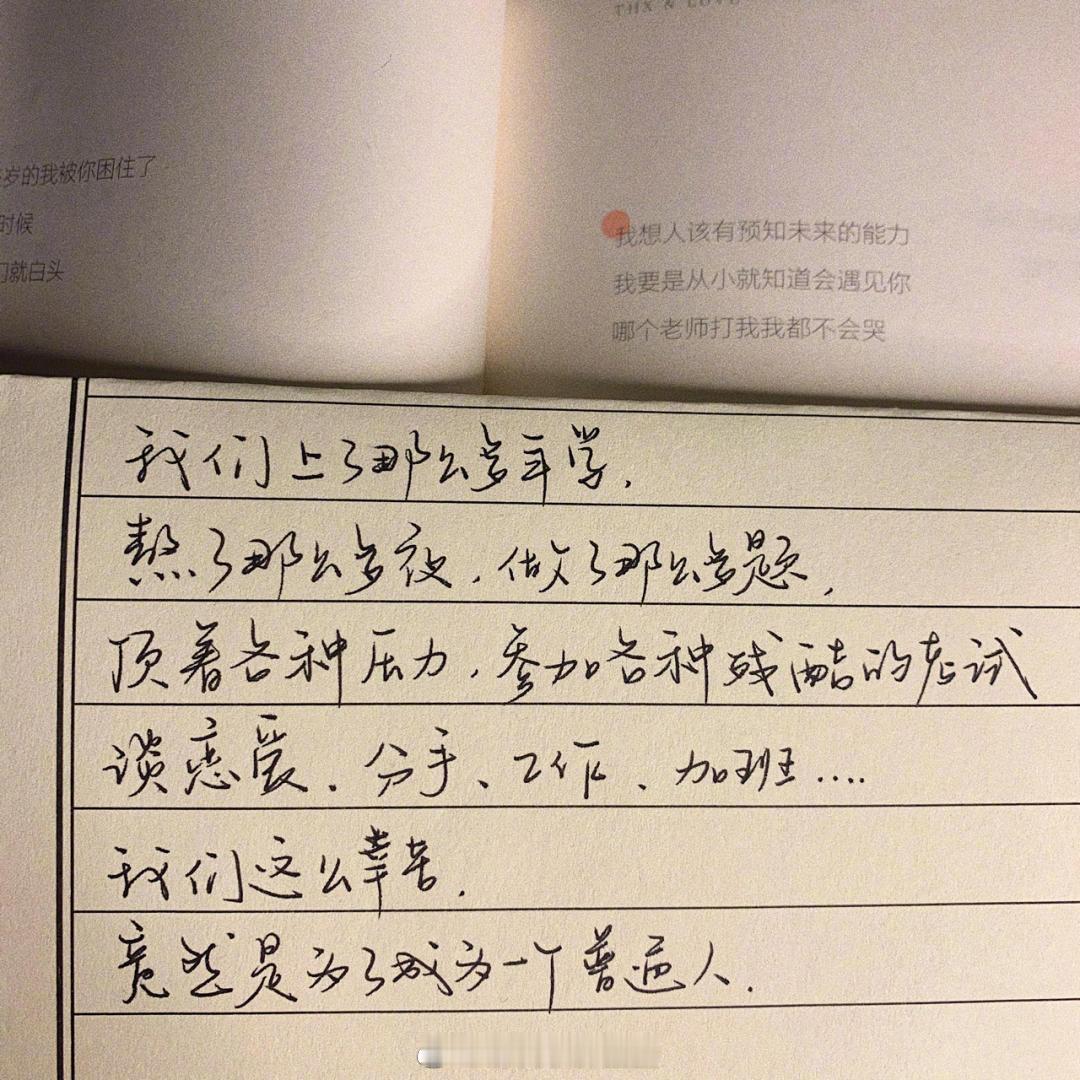 THX & LOVE
岁的我被你困住了
时候
们就白头
我想人该有预知未来的能力
我要是从小就知道会遇见你
哪个老师打我我都不会哭
我们上了那么多年学.
熬了那么多夜.做了那么多题.
顶着各种压力.参加各种残酷的考试
谈恋爱.分手、工作、加班....
我们这么辛苦.
竟然是为了成为一个普通人.